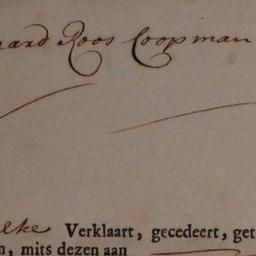 aard Roos Coopman
elke Verklaart, gecedeert, get
n, mits dezen aan